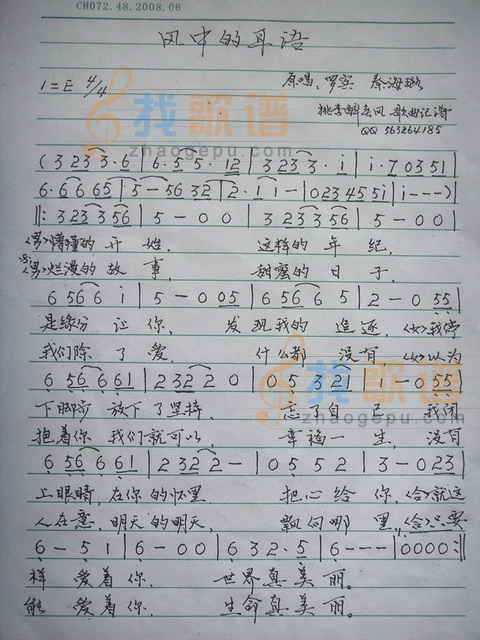 CH072.48.2008.06
风中的耳语
1=E 4/4 原唱: 罗宾 秦海璐
找歌谱
zhaogepu.com
歌曲记谱
QQ 563264185
(3 2 3 3 3·6 | 6·5 5· 1 2 | 3 2 3 3· i | i·7 0 3 5 1 |
6·6 6 6 5 | 5 - 5 6 3 2 | 2·1 1 - | 0 2 3 4 5 5 i | i - - -)
‖: 3 2 3 3 5 6 | 5 - 0 0 | 3 2 3 3 5 6 | 5 - 0 0 |
<男>懵懂的 开 始, 这样的 年 纪,
<男>烂漫的 故 事, 甜蜜的 日 子,
6 5 6 6 i | 5 - 0 0 5 | 6 5 6 6 5 | 2 - 0 5 5 |
是缘份 让 你, 发 现我的 追逐, <女>我停
我们除 了 爱, 什么都 没有 <女>以为
找歌谱
zhaogepu.com
6 5 6 6 6 6 1 | 2 3 2 2 0 | 0 5 3 2 1 | 1 - 0 5 5 |
下脚步 放下了坚持, 忘了自己 我闭
抱着你 我们就可以, 幸福一生, 没有
6 5 6 6 6 1 | 2 3 2 2 - | 0 5 5 2 | 3 - 0 2 3 |
上眼睛, 在你的怀里 把心给你, <合>就这
人在意, 明天的明天, 飘向哪里, <合>只要
6 - 5 1 | 6 - 0 0 | 6 3 2·5 | 6 - - - | 0 0 0 0 :‖
样 爱着你, 世界真美丽。
能 爱着你, 生命真美丽。